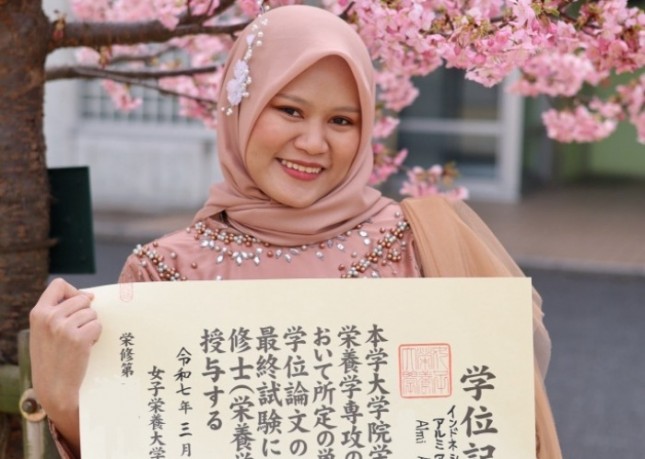 学位記
インドネシ
アルミ
Almi
本学大学院学
栄養学専攻の
おいて所定の単
学位論文の
最終試験に
修士(栄養学
授与する
令和七年三月
女子栄養大学
栄修第